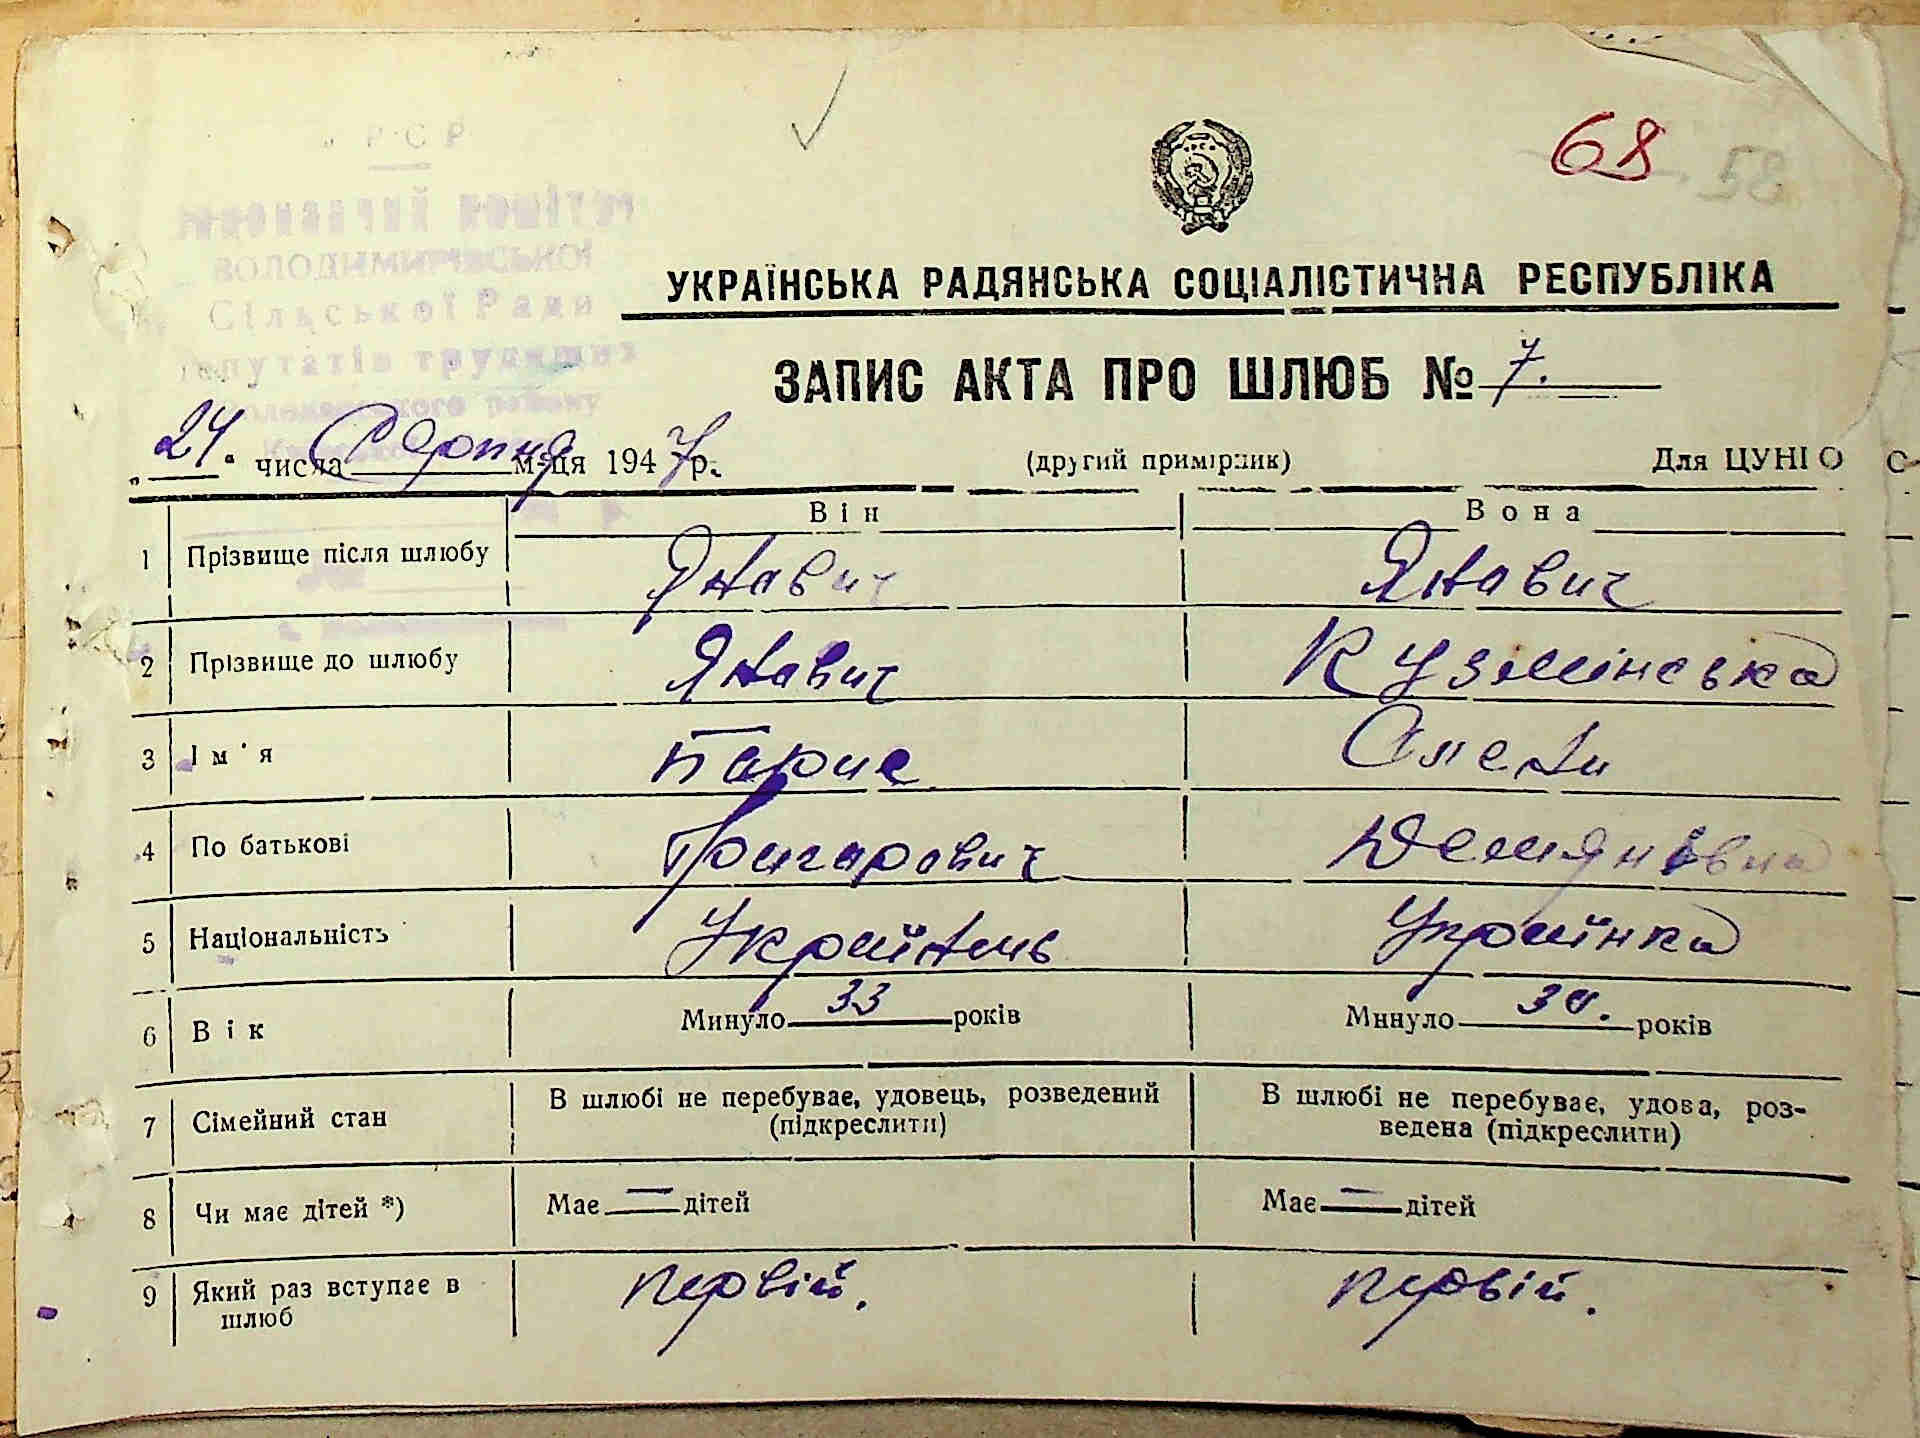 68 58
РСР
ВОЛОДИМИРІВСЬКОЇ
Сільської Ради
депутатів трудящих
УКРАЇНСЬКА РАДЯНСЬКА СОЦІАЛІСТИЧНА РЕСПУБЛІКА
ЗАПИС АКТА ПРО ШЛЮБ № 7.
„24" числа Серпня м-ця 1947 р. (другий примірник) Для ЦУНГО
Він Вона
1 Прізвище після шлюбу Янавич Янавич
2 Прізвище до шлюбу Янавич Кузмінська
3 Ім'я Олена
4 По батькові Григорович Демянівна
5 Національність Українець Українка
6 Вік Минуло 33 років Минуло 30. років
7 Сімейний стан В шлюбі не перебуває, удовець, розведений (підкреслити) В шлюбі не перебуває, удова, роз-
ведена (підкреслити)
8 Чи має дітей *) Має — дітей Має — дітей
9 Який раз вступає в шлюб первій. первій.